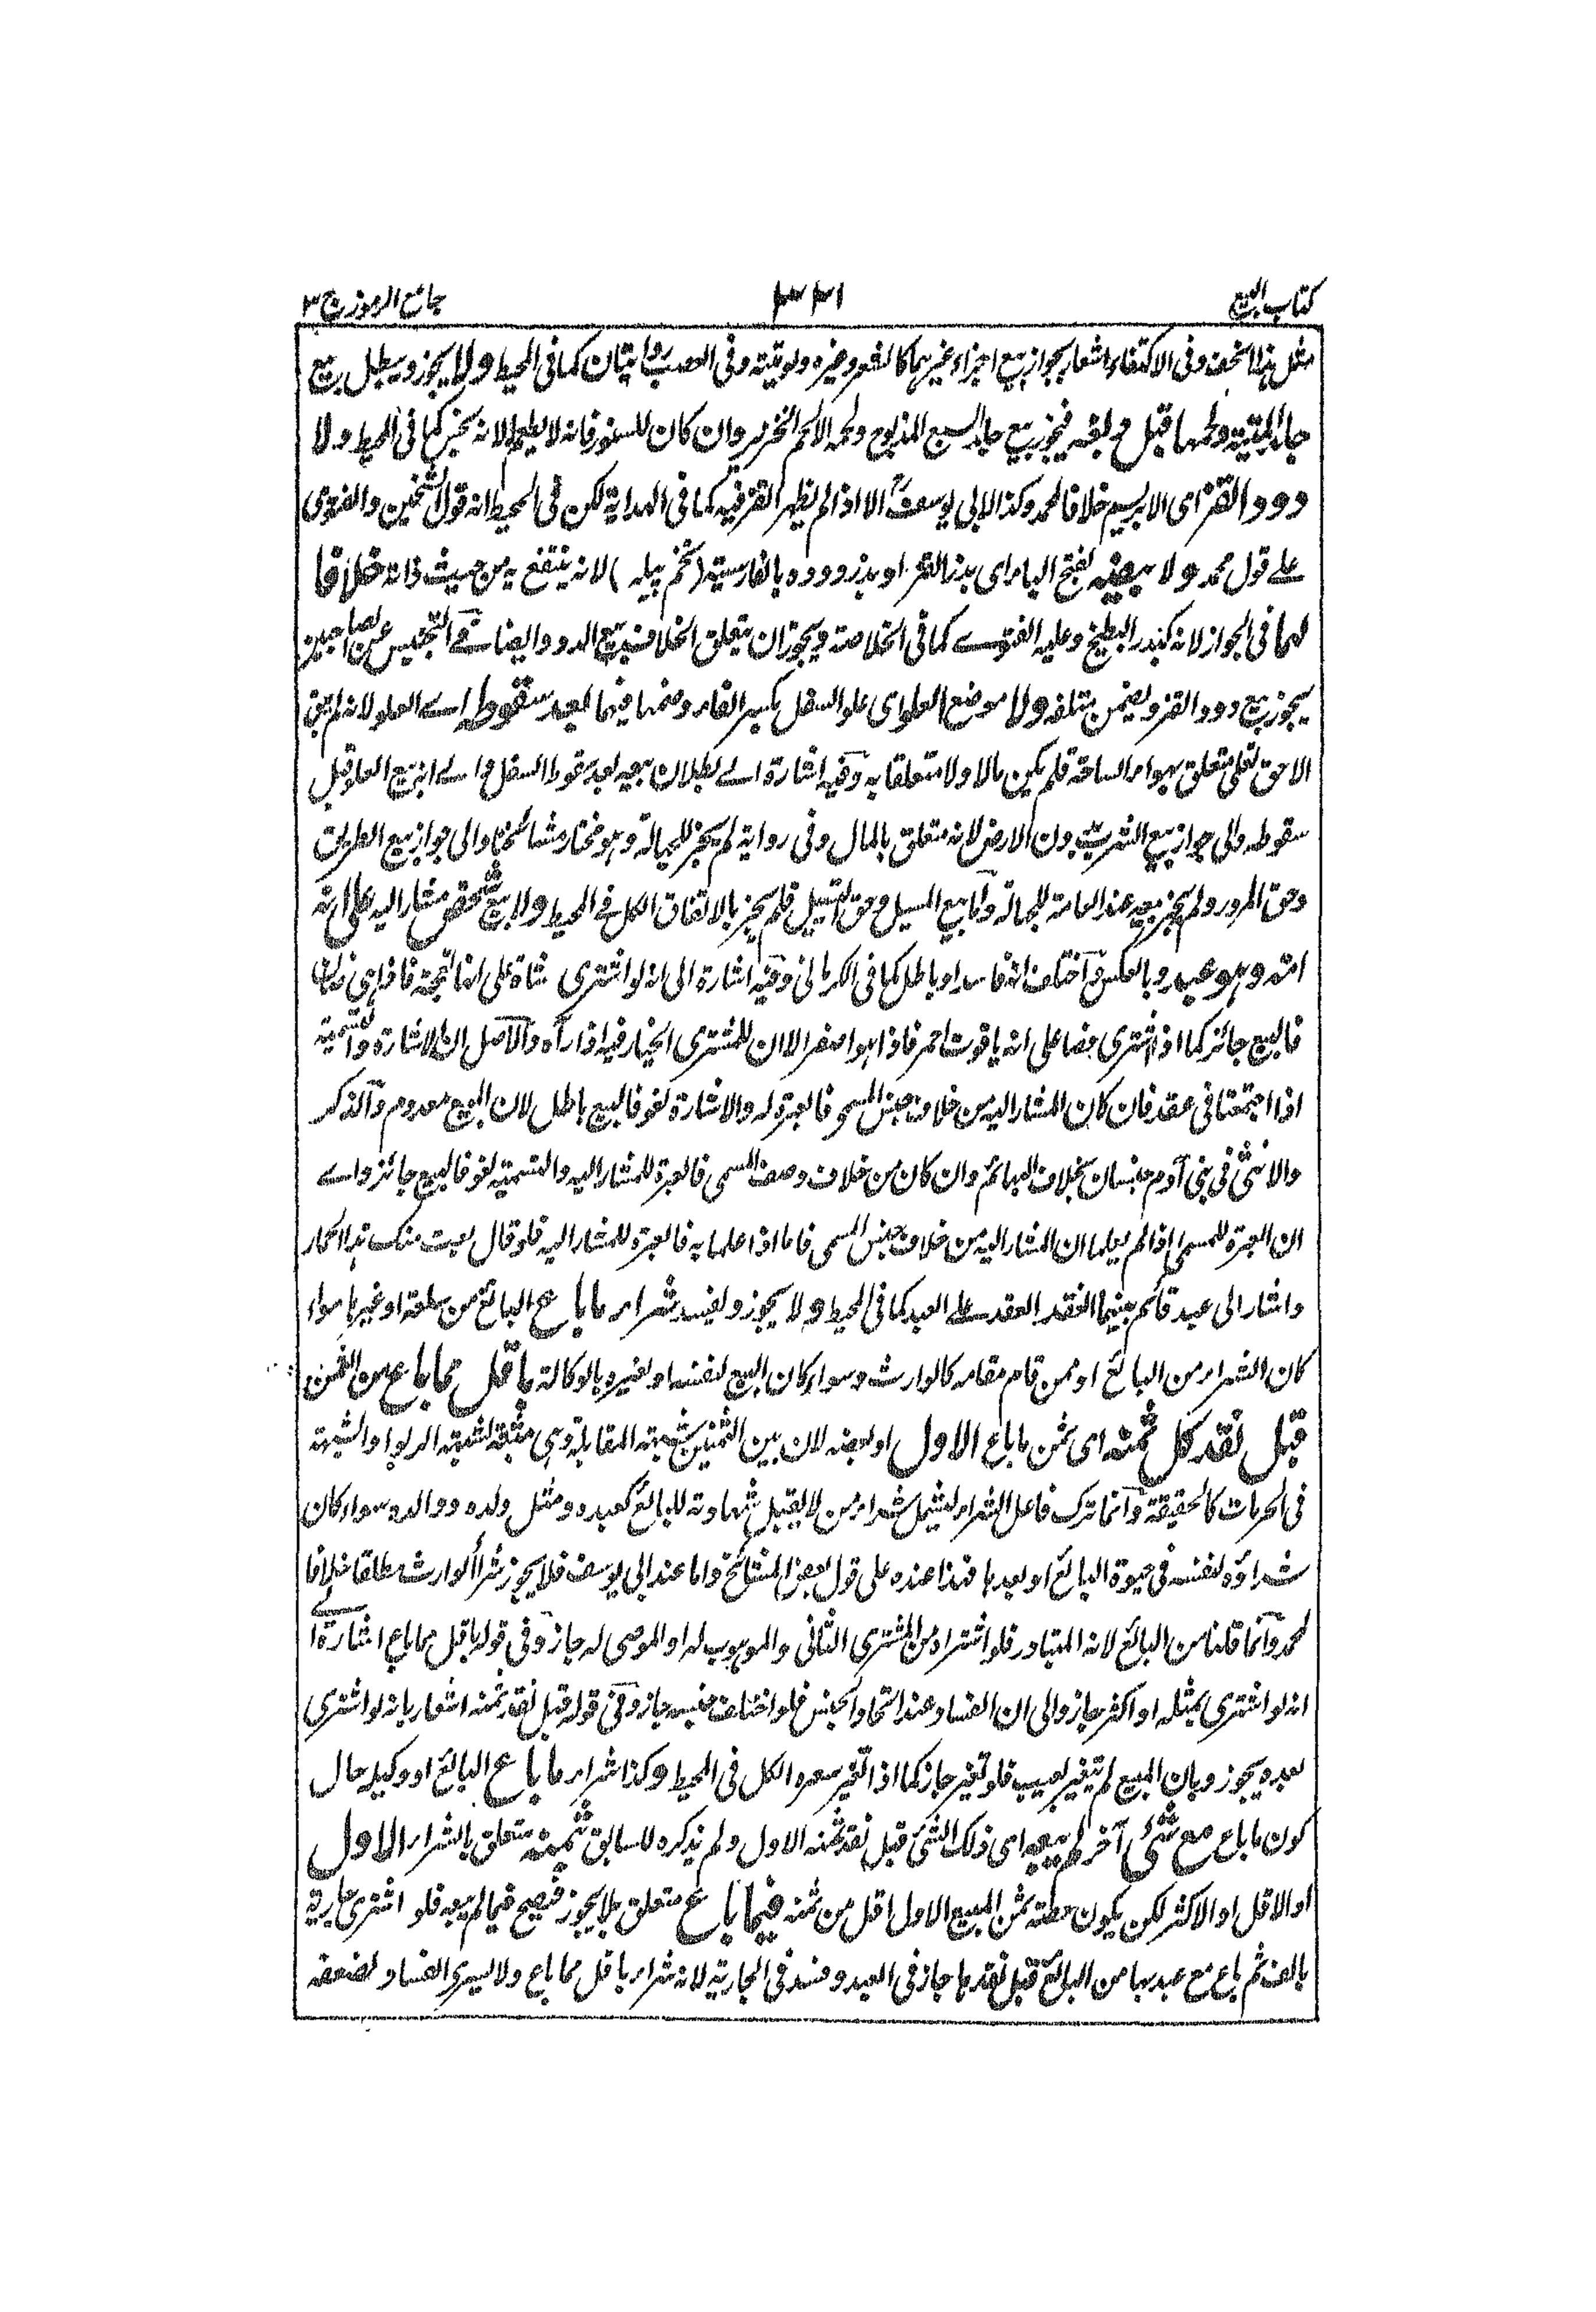 كتاب البيع ٣٣١ جامع الرموز ج ٣
مثل هذا لا يخفف وفى الاكتفاء اشعار بجواز بيع اجزاء غيرهما كالشعر وغيره ولو ميتة وفى العصب روايتان كما فى المحيط ولا يجوز ويبطل بيع
جلد الميتة ولحمها قبل دبغه فيجوز بيع جلد السبع المذبوح ولحمه الا لحم الخنزير وان كان للسنور فانه لا يطعم لانه نجس كما فى المحيط ولا
دود القز اى الابريسم خلافا لمحمد وكذا لابى يوسف الا اذا لم يظهر القز فيه كما فى الهداية لكن فى المحيط انه قول الشيخين والفتوى
على قول محمد ولا بيضه بفتح الباء اى بذر القز او بذر دوده بالفارسية (تخم پيله) لانه ينتفع به من حيث ذاته خلافا
لهما فى الجواز لانه كبذر البطيخ وعليه الفتوى كما فى الخلاصة ويجوز ان يتعلق الخلاف ببيع الدود وايضا فى التجنيس عن الصاحبين
يجوز بيع دود القز ويضمن متلفه ولا موضع العلو اى علو السفل بكسر الفاء وضمها فيهما بعد سقوطه اى العلو لانه لم يبق
الا حق تعلى متعلق بهواء الساحة فلم يكن مالا ولا متعلقا به وفيه اشارة الى بطلان بيعه بعد سقوط السفل والى انه بيع العلو قبل
سقوطه والى جواز بيع الشرب بدون الارض لانه متعلق بالمال وفى رواية لم يجز للجهالة وهو مختار مشائخنا والى جواز بيع الطريق
وحق المرور ولم يجز بيعه عند العامة للجهالة واما بيع المسيل وحق التسييل فلم يجز بالاتفاق الكل فى المحيط ولا بيع شخص مشار اليه على انه
امة وهو عبد وبالعكس واختلف انه فاسد او باطل كما فى الكرمانى وفيه اشارة الى انه لو اشترى شاة على انها نعجة فاذا هى
فالبيع جائز كما اذا اشترى فصا على انه ياقوت احمر فاذا هو اصفر الا ان للمشترى الخيار فيه اذا رآه والاصل ان الاشارة والتسمية
اذا اجتمعتا فى عقد فان كان المشار اليه من خلاف جنس المسمى فالعبرة له والاشارة لغو فالبيع باطل لان المبيع معدوم والذكر
والانثى فى بنى آدم جنسان بخلاف البهائم وان كان من خلاف وصف المسمى فالعبرة للمشار اليه والتسمية لغو فالبيع جائز والى
ان العبرة للمسمى اذا لم يعلما ان المشار اليه من خلاف جنس المسمى فاما اذا علما به فالعبرة للمشار اليه فلو قال بعت منك هذا الحمار
واشار الى عبد قائم بينهما انعقد العقد على العبد كما فى المحيط ولا يجوز ويفسد شراء ما باع البائع من سلعة او غيرها سواء
كان الشراء من البائع او ممن قام مقامه كالوارث وسواء كان البيع لنفسه او لغيره بالوكالة باقل مما باع من الثمن
قبل نقد كل ثمنه اى ثمن ما باع الاول او بعضه لان بين الثمنين شبهة المقابلة وهى مثبتة لشبهة الربوا والشبهة
فى الحرمات كالحقيقة وانما ترك فاعل الشراء ليشمل شراء من لا يقبل شهادته للبائع كعبده ومثل ولده ووالده سواء كان
شراؤه لنفسه فى حيوة البائع او بعدها فهذا عنده على قول بعض المشائخ واما عند ابى يوسف فلا يجوز شراء الوارث مطلقا خلافا
لمحمد وانما قلنا من البائع لانه المتبادر فلو اشتراه من المشترى الثانى والموهوب له او الموصى له جاز وفى قوله باقل مما باع اشارة الى
انه لو اشترى بمثله او اكثر جاز والى ان الفساد عند اتحاد الجنس فلو اختلف جنسه جاز وفى قوله قبل نقد ثمنه اشعار بانه لو اشترى
بعده يجوز وبان المبيع لم يتغير بعيب فلو تغير جاز كما اذا تغير سعره الكل فى المحيط وكذا شراء ما باع البائع او وكيله حال
كون ما باع مع شئ آخر لم يبعه اى ذلك الشئ قبل نقد ثمنه الاول ولم يذكره لما سبق بثمنه متعلق بالشراء الاول
او الاقل او الاكثر لكن يكون حصته بثمن المبيع الاول اقل من ثمنه فيما باع متعلق بلا يجوز فيصح فيما لم يبعه فلو اشترى جارية
بالف ثم باع مع عبدها من البائع قبل نقدها جاز فى العبد وفسد فى الجارية لانه شراء باقل مما باع ولا يسرى الفساد لضعفه